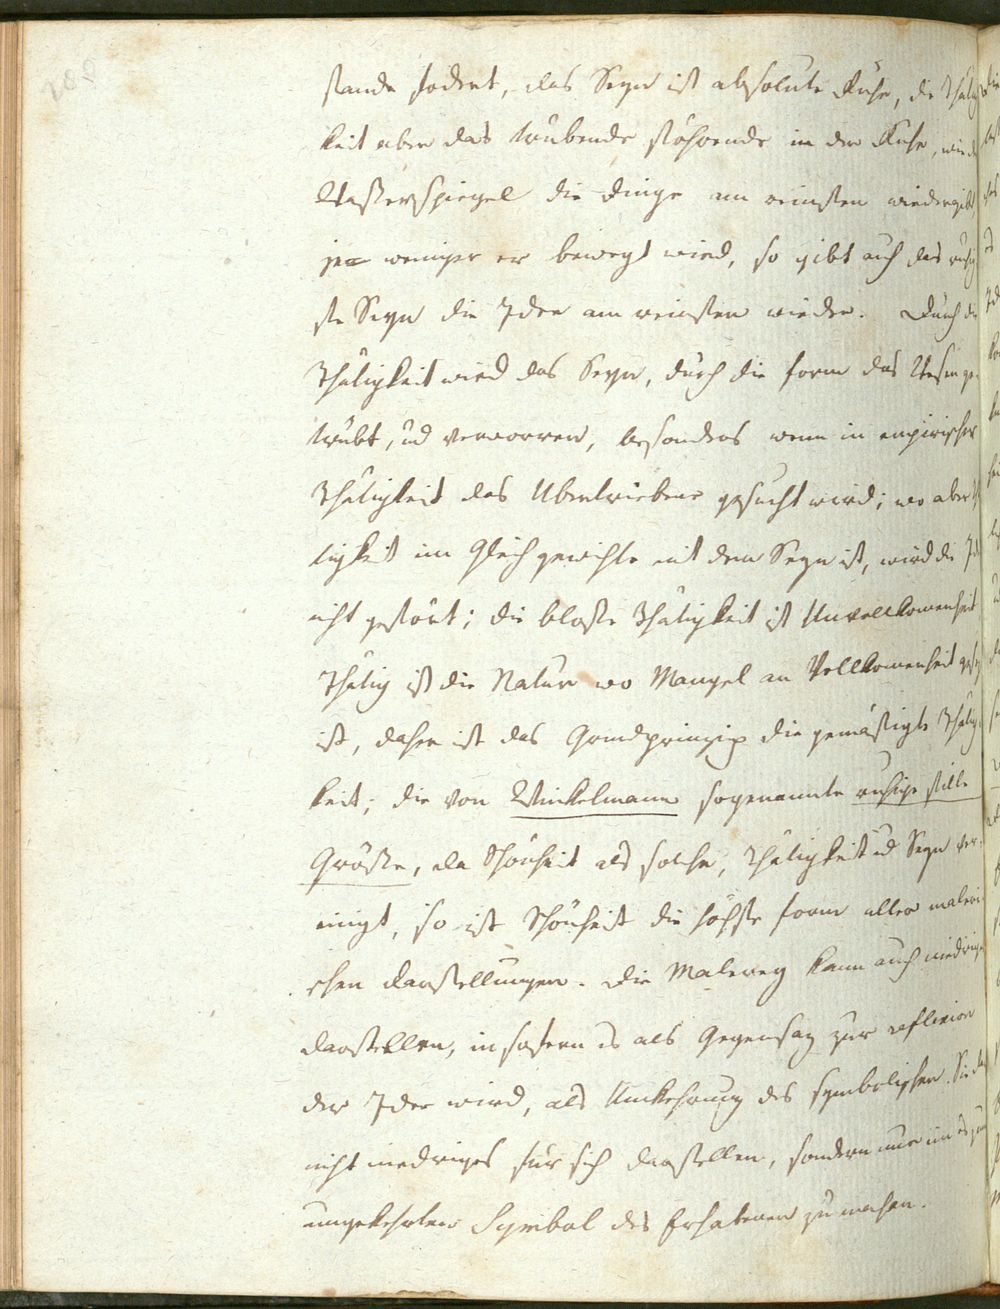 stande fodert, das Seyn ist absolute Ruhe, die Thätig
keit aber das trübende störende in der Ruhe, wie der
Waßerspiegel die Dinge am reinsten wiedergibt,
je weniger er bewegt wird, so gibt auch das ruhig
ste Seyn die Idee am reinsten wieder. Durch die
Thätigkeit wird das Seyn, durch die Form das Wesen ge
trübt, und verworren, besonders wenn in empirischer
Thätigkeit das Übertriebene gesucht wird; wo aber Thä
tigkeit im Gleichgewichte mit dem Seyn ist, wird die Idee
nicht gestört; die bloße Thätigkeit ist Unvollkomenheit
Thätig ist die Natur wo Mangel an Vollkomenheit
ist, daher ist das Grundprinzip die gemäßigte Thätig
keit; die von Winkelmann sogenannte ruhige stille
Größe, da Schönheit als solche, Thätigkeit und Seyn ver
einigt, so ist Schönheit die höchste Form aller maleri
schen Darstellungen. Die Malerey kann auch niedriges
darstellen, in sofern es als Gegensatz zur reflexion
der Idee wird, als Umkehrung des symbolischen. Sie
nicht niedriges für sich darstellen, sondern nur um es zum
umgekehrten Symbol des Erhabenen zu machen.